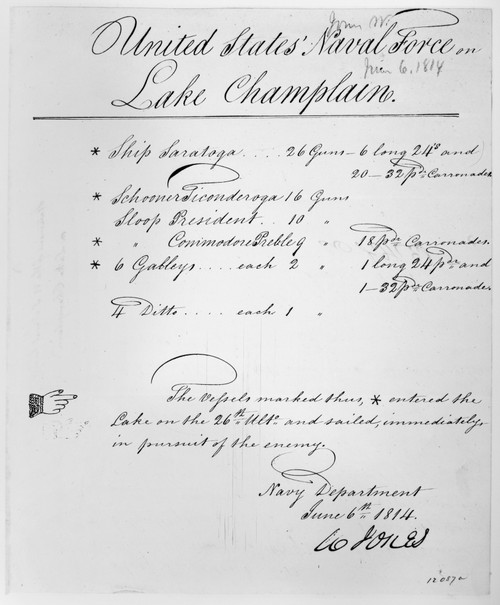 John W.
United States' Naval Force on
Jun 6. 1814
Lake Champlain.
* Ship Saratoga .... 26 Guns – 6 long 24s and
20 – 32pr Carronades
* Schooner Ticonderoga 16 Guns
Sloop President .. 10 "
* " Commodore Preble 9 " 18pdr Carronades.
* 6 Galleys .... each 2 " 1 long 24pdr and
1 – 32pdr Carronades
4 Ditto ..... each 1 "
The Vessels marked thus, * entered the
Lake on the 26th Ulto and sailed, immediately
in pursuit of the enemy.
Navy Department
June 6th 1814.
W Jones